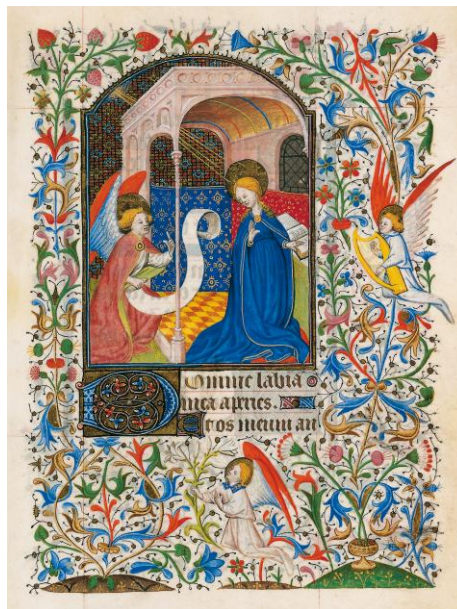 Domine labia
mea aperies.
Et os meum an